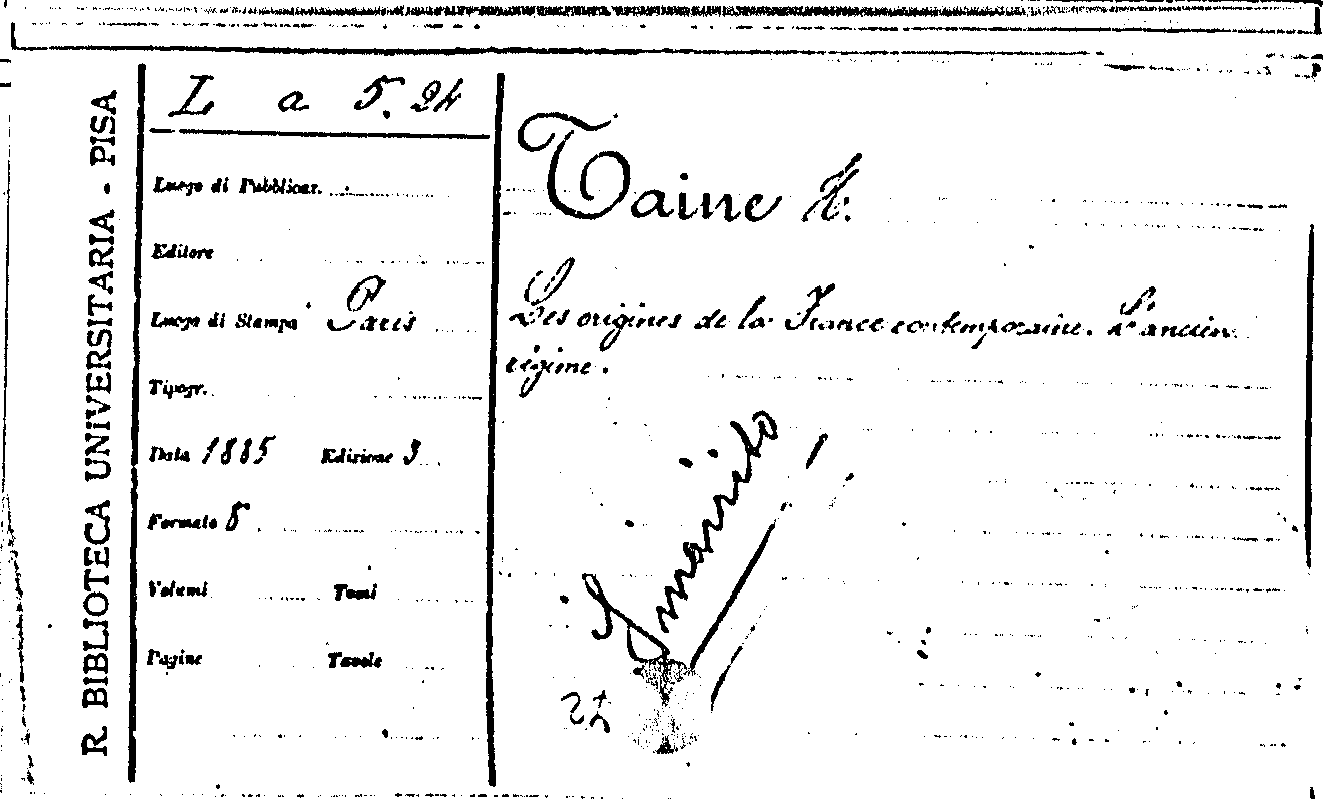 R. BIBLIOTECA UNIVERSITARIA - PISA
L a 5. 24
Luogo di Pubblicaz.
Editore
Luogo di Stampa Paris
Tipogr.
Data 1885 Edizione 3
Formato 8
Volumi Tomi
Pagine Tavole
Taine H.
Les origines de la France contemporaine. L'ancien
régime.
Smarrito